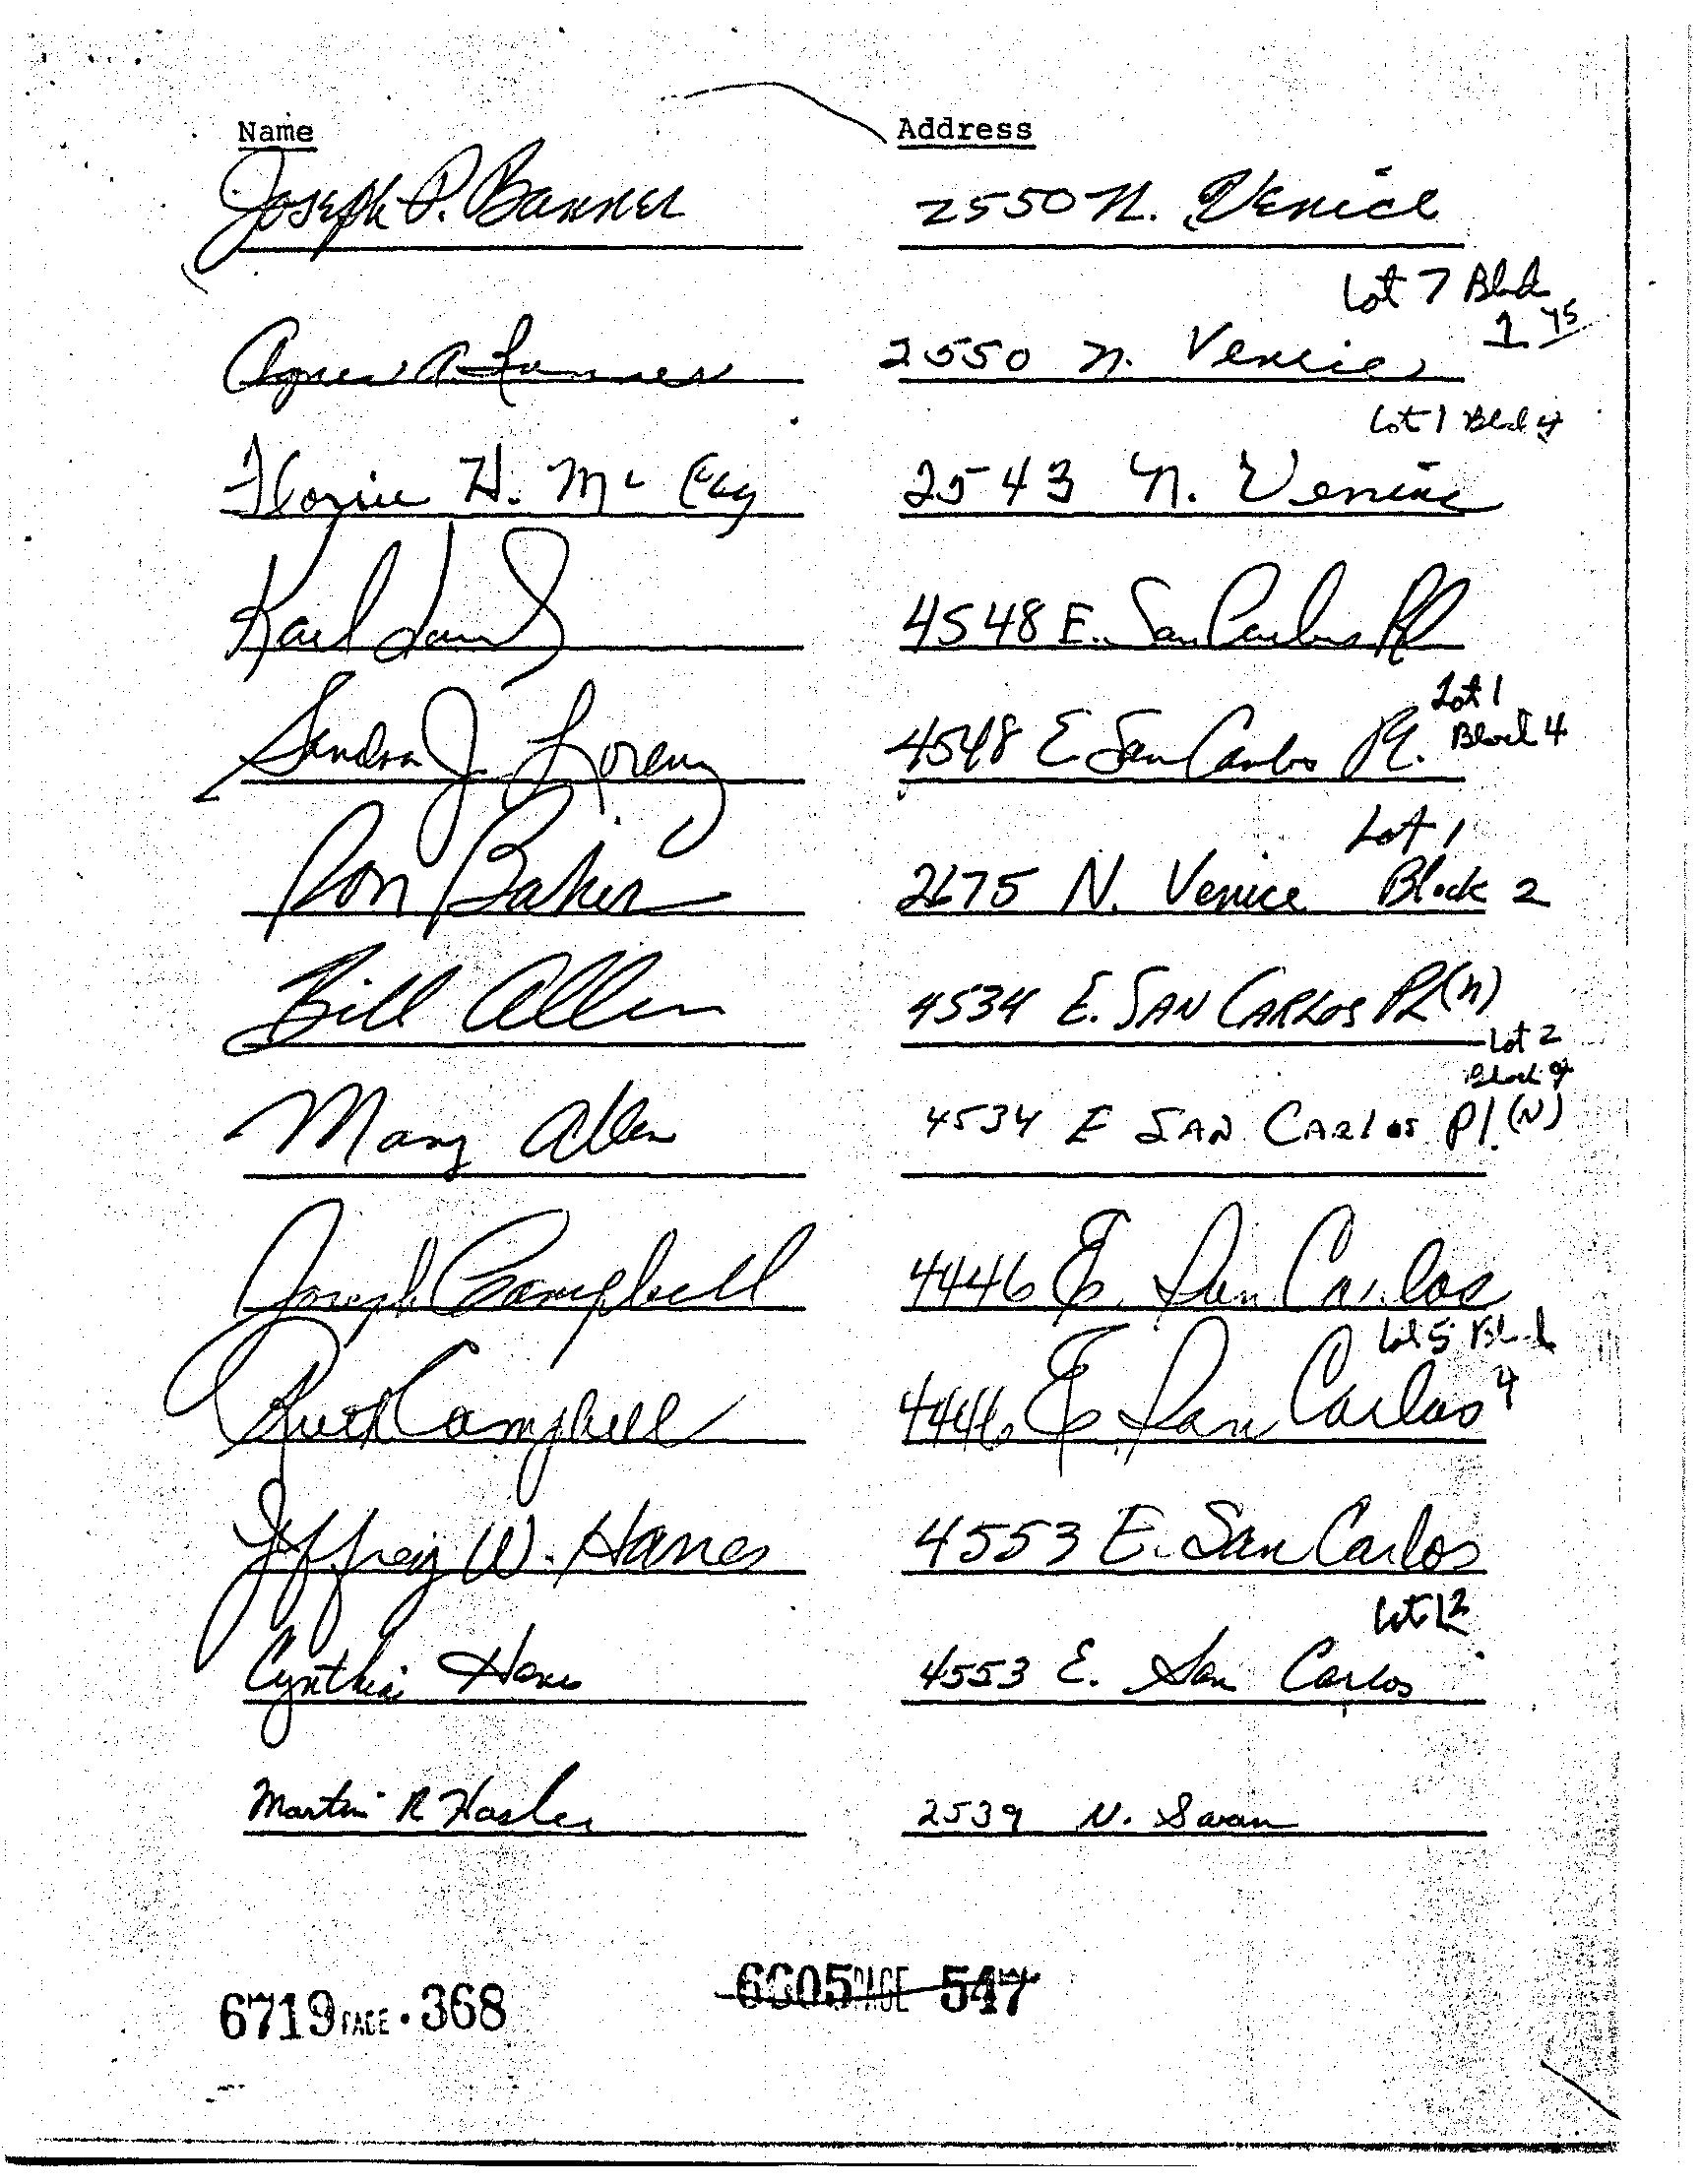 Name Address
Joseph P. Banner 2550 N. Venice
Lot 7 Block
1
Agnes 2550 N. Venice
Lot 1 Block 4
H. Mc 2543 N. Venice
Karl 4548 E. San Carlos Pl
Lot 1
Sandra J. Lorenz 4548 E San Carlos Pl. Block 4
Lot 1
Ron Baker 2675 N. Venice Block 2
Bill Allen 4534 E. SAN CARLOS PL (N)
Lot 2
Block 4
Mary Allen 4534 E SAN CARlos Pl. (N)
Joseph Campbell 4446 E. San Carlos
Lot 5 Block
4
Ruth Campbell 4446 E. San Carlos
Jeffrey W. Hanes 4553 E. San Carlos
Lot 12
Cynthia Hanes 4553 E. San Carlos
Martin R Hasler 2539 N. Swan
6719 PAGE 368 6605 PAGE 547